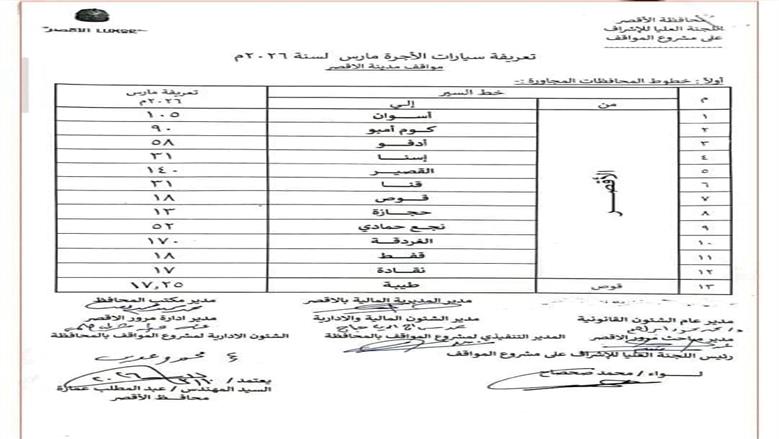 محافظة الأقصر
اللجنة العليا للإشراف
على مشروع المواقف
الاقصر LUXOR
تعريفة سيارات الأجرة مارس لسنة ٢٠٢٦م
مواقف مدينة الاقصر
أولاً : خطوط المحافظات المجاورة :-
م خط السير تعريفة مارس ٢٠٢٦م
من إلي
١ الأقصر أسوان ١٠٥
٢ كوم أمبو ٩٠
٣ أدفو ٥٨
٤ إسنا ٣١
٥ القصير ١٤٠
٦ قنا ٣١
٧ قوص ١٨
٨ حجازة ١٣
٩ نجع حمادي ٥٢
١٠ الغردقة ١٧٠
١١ قفط ١٨
١٢ نقادة ١٧
١٣ قوص طيبة ١٧,٢٥
مدير عام الشئون القانونية مدير المديرية المالية بالاقصر مدير مكتب المحافظ
مدير مباحث مرور الاقصر مدير الشئون المالية والادارية مدير ادارة مرور الاقصر
المدير التنفيذي لمشروع المواقف بالمحافظة الشئون الادارية لمشروع المواقف بالمحافظة
رئيس اللجنة العليا للإشراف على مشروع المواقف
لـواء / محمد صحصاح
يعتمد /
السيد المهندس / عبد المطلب عمارة
محافظ الأقصر